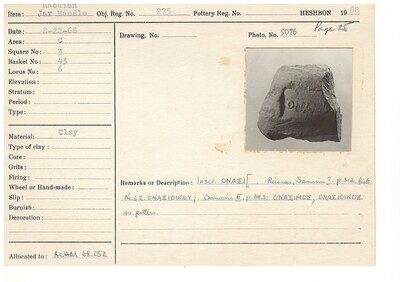 Item: Rhodian Jar Handle Obj. Reg. No. 275 Pottery Reg. No. HESHBON 1968
Page 25
Date: 8-22-68
Area: C
Square No: 3
Basket No: 43
Locus No: 6
Elevation:
Stratum:
Period:
Type:
Drawing, No. Photo, No. 5076
ΟΝΑ
Material: Clay
Type of clay:
Core:
Grits:
Firing:
Wheel or Hand-made:
Slip:
Burnish:
Decoration:
Remarks or Description: Inscr. ΟΝΑΣΙ[ Reisner, Samaria I. p. 312,
No 62. ΟΝΑΣΙΟΙΚΟΥ; Samaria III. p. 383: ΟΝΑΣΙΜΟΣ, ΟΝΑΣΙΟΙΚΟΣ
as potters.
Allocated to: AUAM 68.052